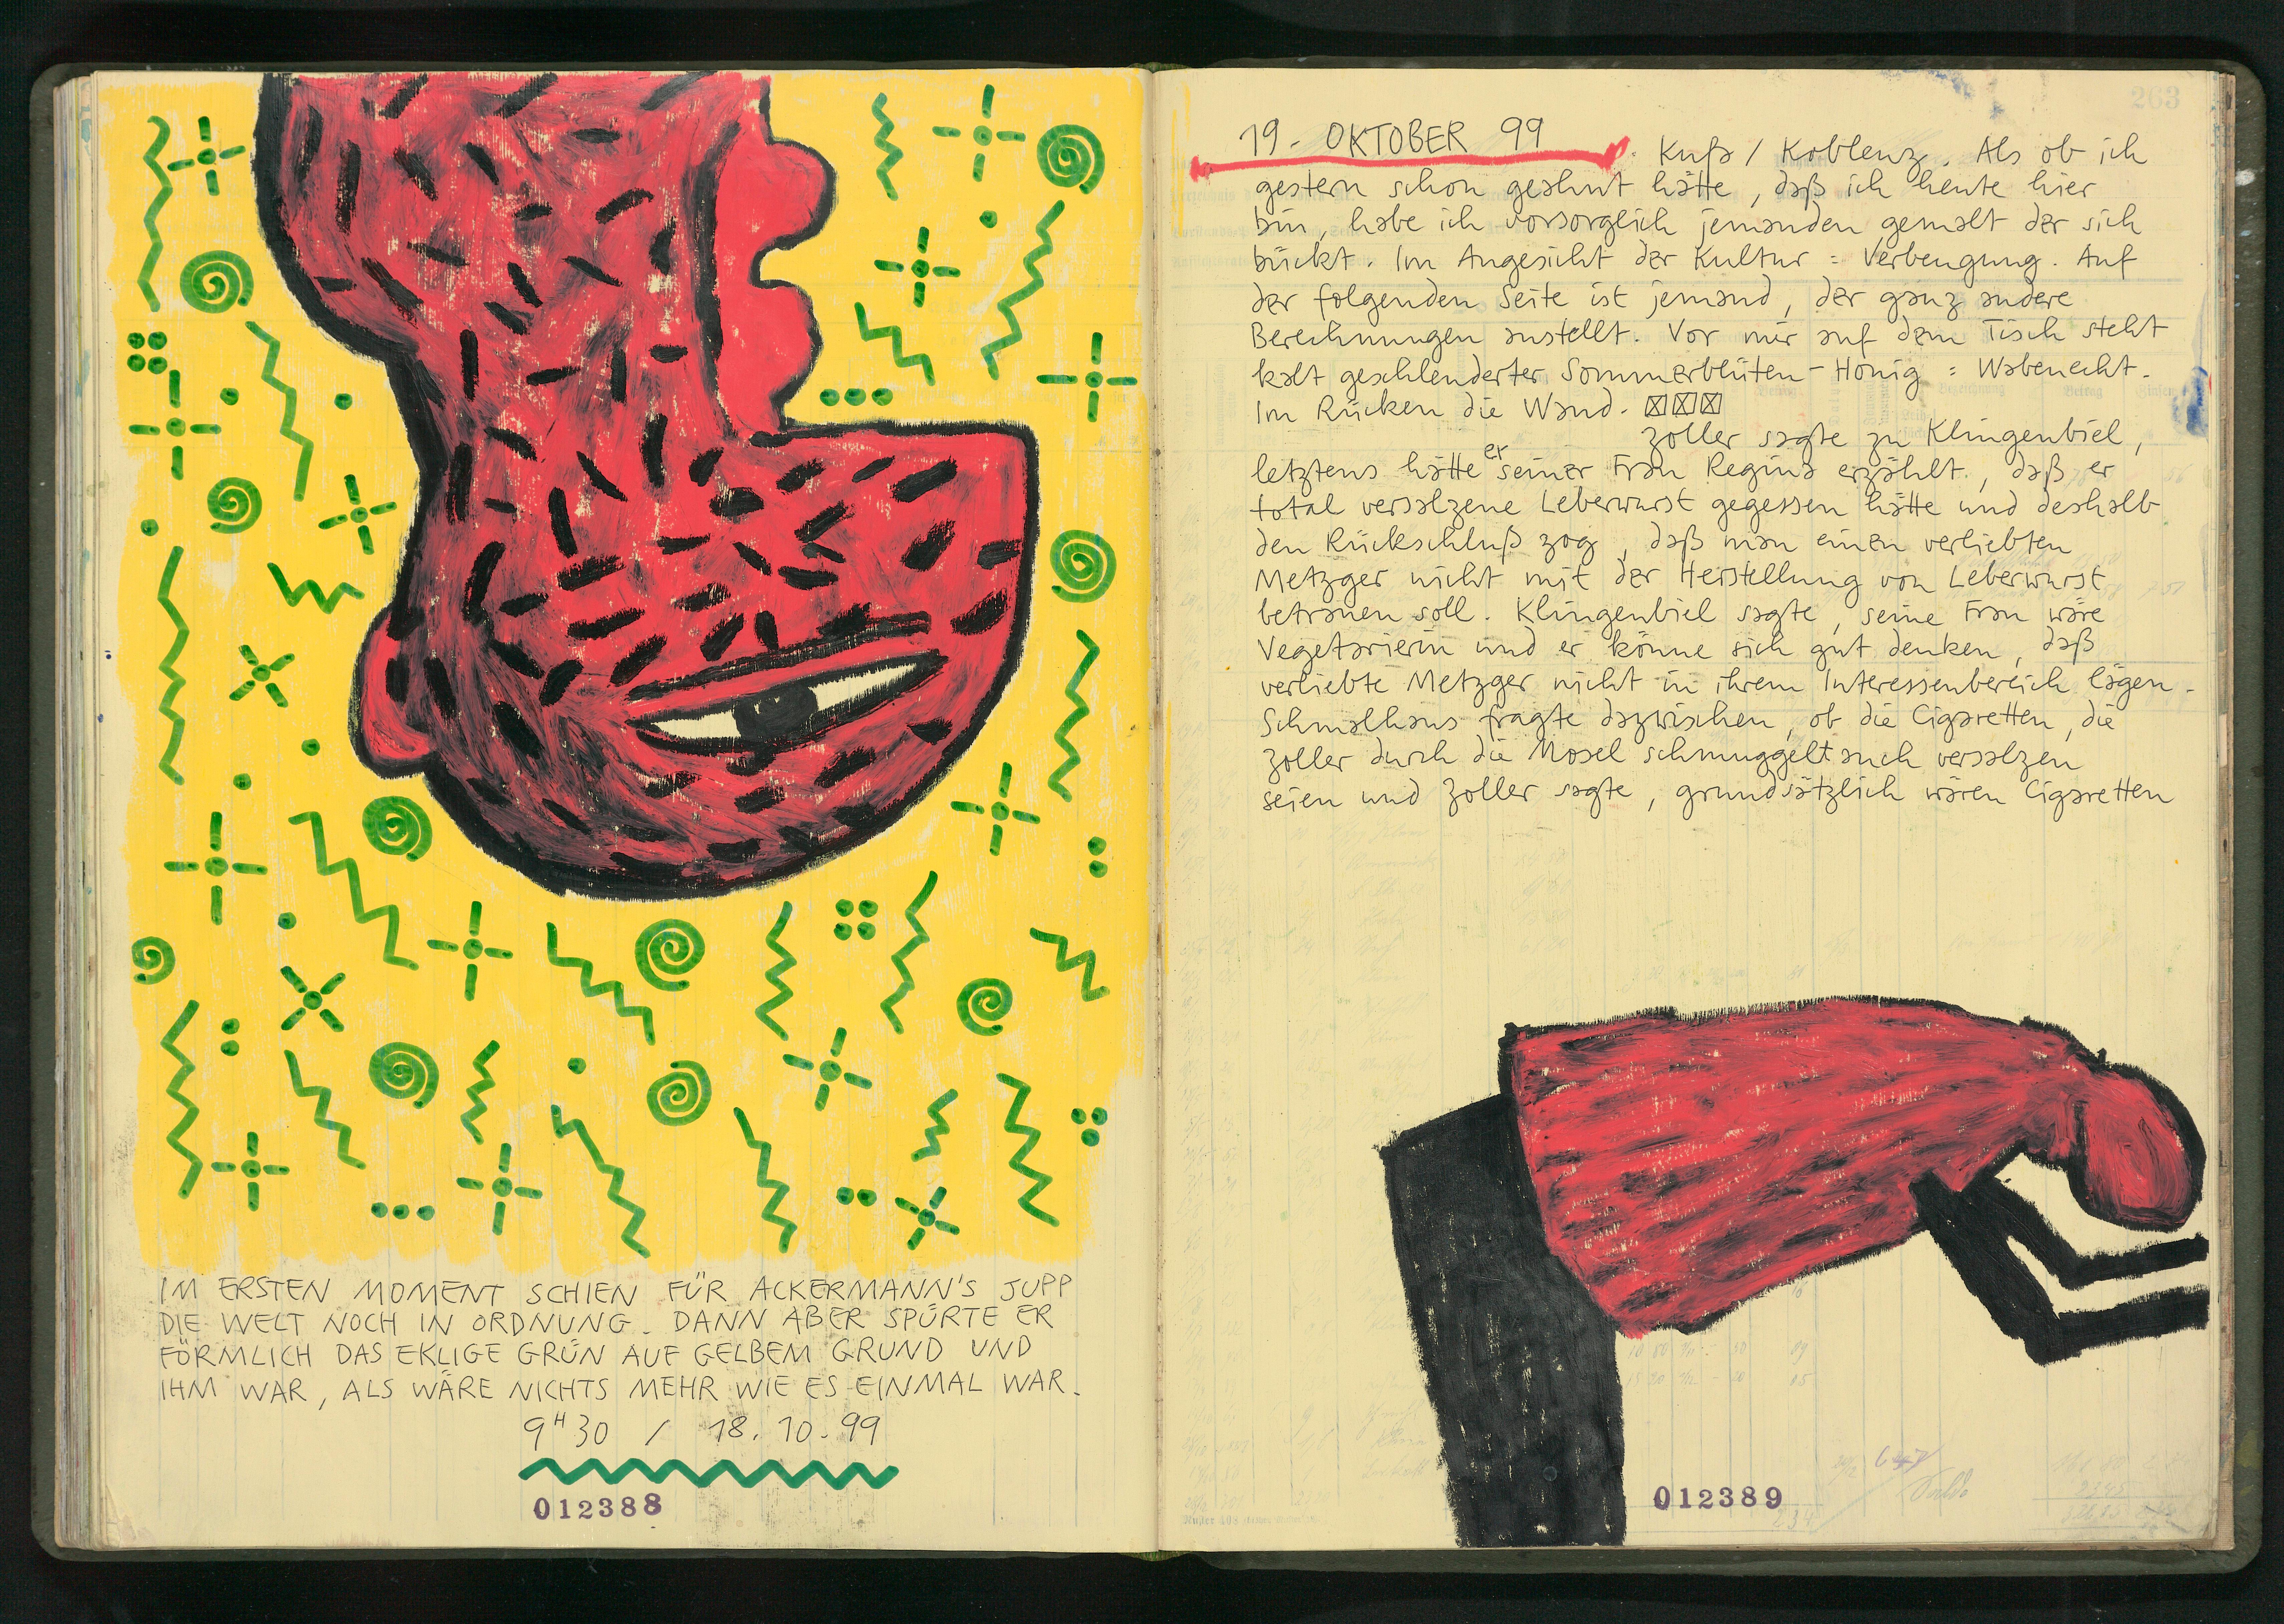 IM ERSTEN MOMENT SCHIEN FÜR ACKERMANN'S JUPP
DIE WELT NOCH IN ORDNUNG. DANN ABER SPÜRTE ER
FÖRMLICH DAS EKLIGE GRÜN AUF GELBEM GRUND UND
IHM WAR, ALS WÄRE NICHTS MEHR WIE ES EINMAL WAR.
9H30 / 18.10.99
012388
263
19. OKTOBER 99. Kuß / Koblenz. Als ob ich
gestern schon geahnt hätte, daß ich heute hier
bin, habe ich vorsorglich jemanden gemalt der sich
bückt. Im Angesicht der Kultur = Verbeugung. Auf
der folgenden Seite ist jemand, der ganz andere
Berechnungen anstellt. Vor mir auf dem Tisch steht
kalt geschlenderter Sommerblüten-Honig = Wabenecht.
Im Rücken die Wand.
Zoller sagte zu Klingenbiel,
letztens hätte er seiner Frau Regina erzählt, daß er
total versalzene Leberwurst gegessen hätte und deshalb
den Rückschluß zog, daß man einen verliebten
Metzger nicht mit der Herstellung von Leberwurst
betrauen soll. Klingenbiel sagte, seine Frau wäre
Vegetarierin und er könne sich gut denken, daß
verliebte Metzger nicht in ihrem Interessenbereich lägen.
Schmalhaus fragte dazwischen, ob die Cigaretten, die
Zoller durch die Mosel schmuggelt auch versalzen
seien und Zoller sagte, grundsätzlich wären Cigaretten
012389